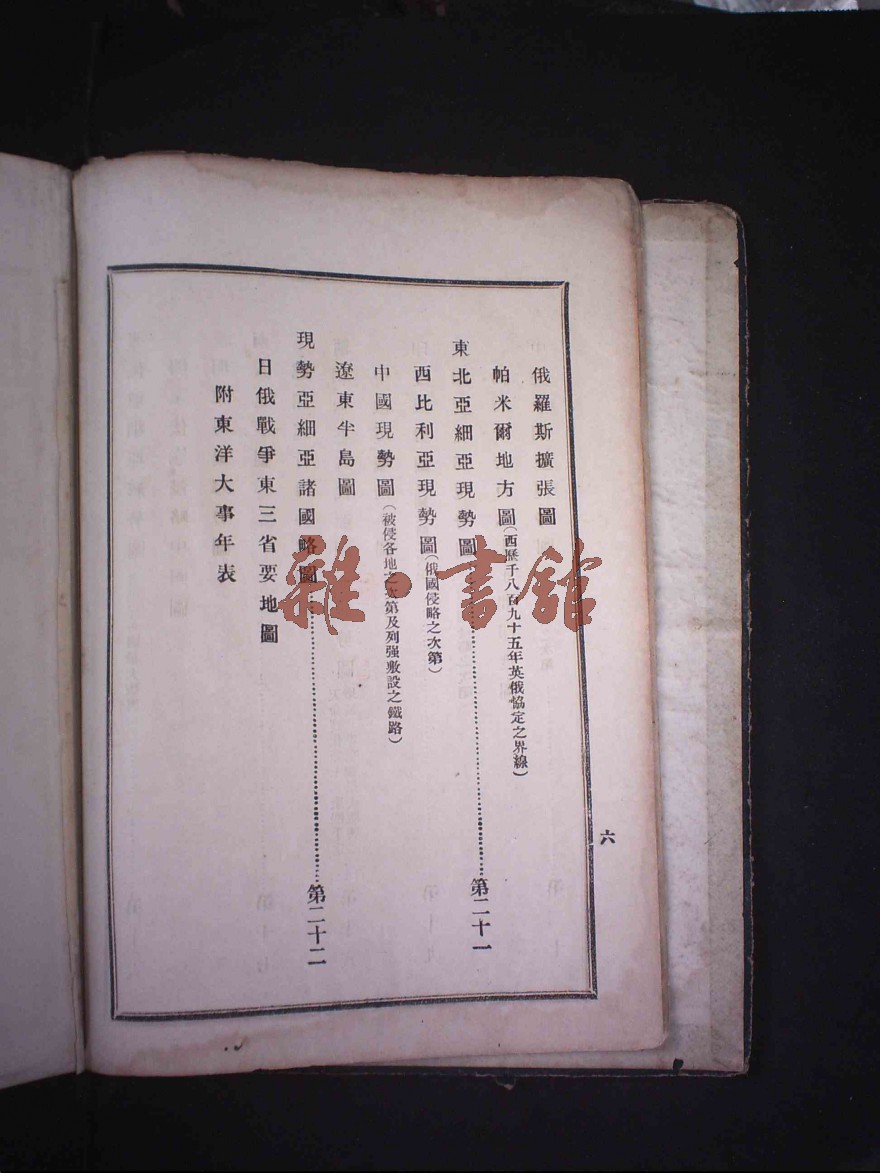 俄羅斯擴張圖
帕米爾地方圖(西歷千八百九十五年英俄恊定之界線)
東北亞細亞現勢圖……第二十一
西比利亞現勢圖(俄國侵略之次第)
中國現勢圖(被侵各地之次第及列强敷設之鐵路)
遼東半島圖
現勢亞細亞諸國略圖……第二十二
日俄戰爭東三省要地圖
附東洋大事年表
六
雜·書館